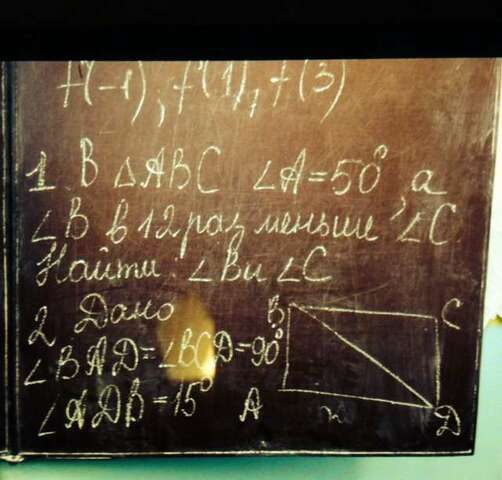 f(-1), f(1), f(3)
1. В △ABC ∠A=50°, а
∠B в 12 раз меньше ∠C.
Найти: ∠B и ∠C
2. Дано
∠BAD=∠BCD=90°
∠ADB=15°
B
C
A
D